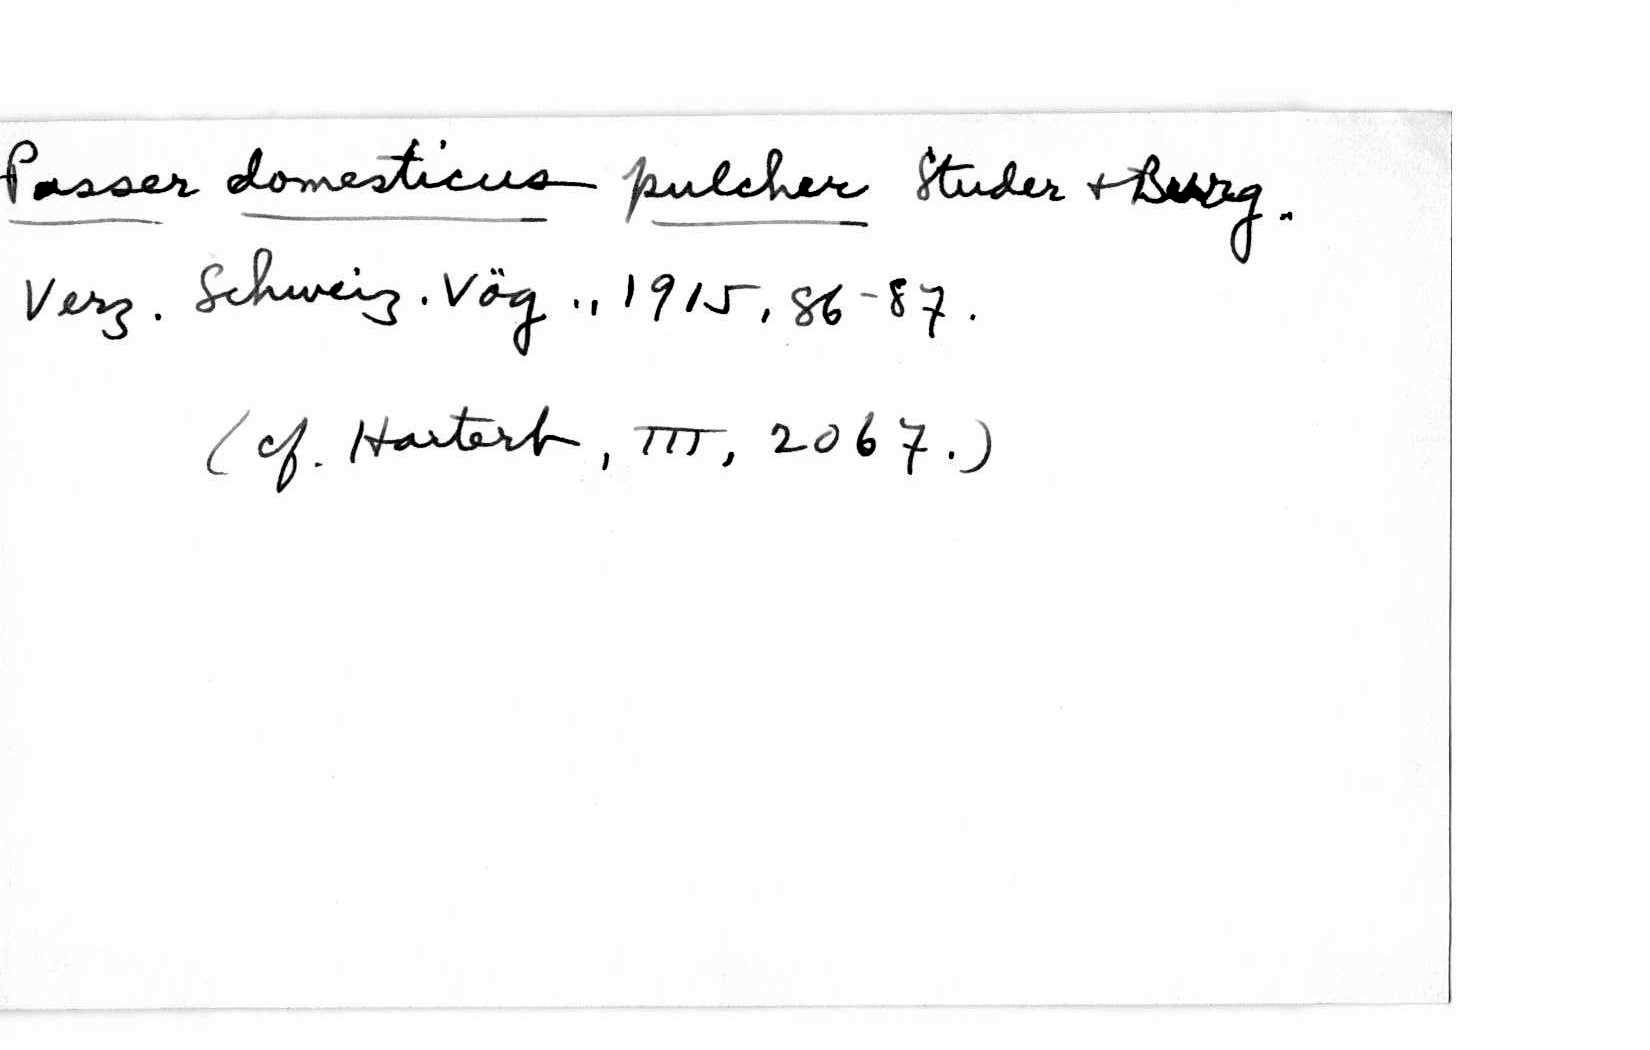 Passer domesticus pulcher Studer + Burg.
Verz. Schweiz. Vög., 1915, 86-87.
(cf. Hartert, III, 2067.)